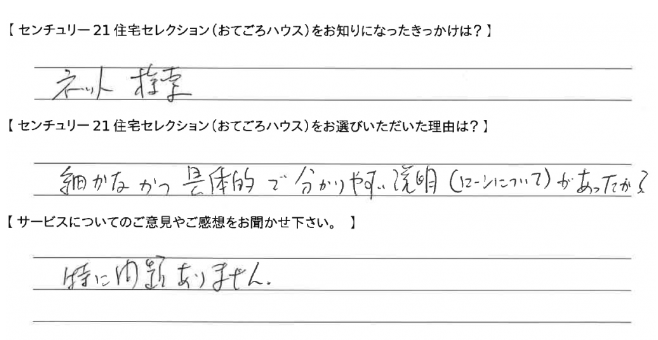 【 センチュリー21住宅セレクション(おてごろハウス)をお知りになったきっかけは?】
ネット 検索
【 センチュリー21住宅セレクション(おてごろハウス)をお選びいただいた理由は?】
細かなかつ具体的で分かりやすい説明(ローンについて)があったから
【 サービスについてのご意見やご感想をお聞かせ下さい。 】
特に問題ありません。